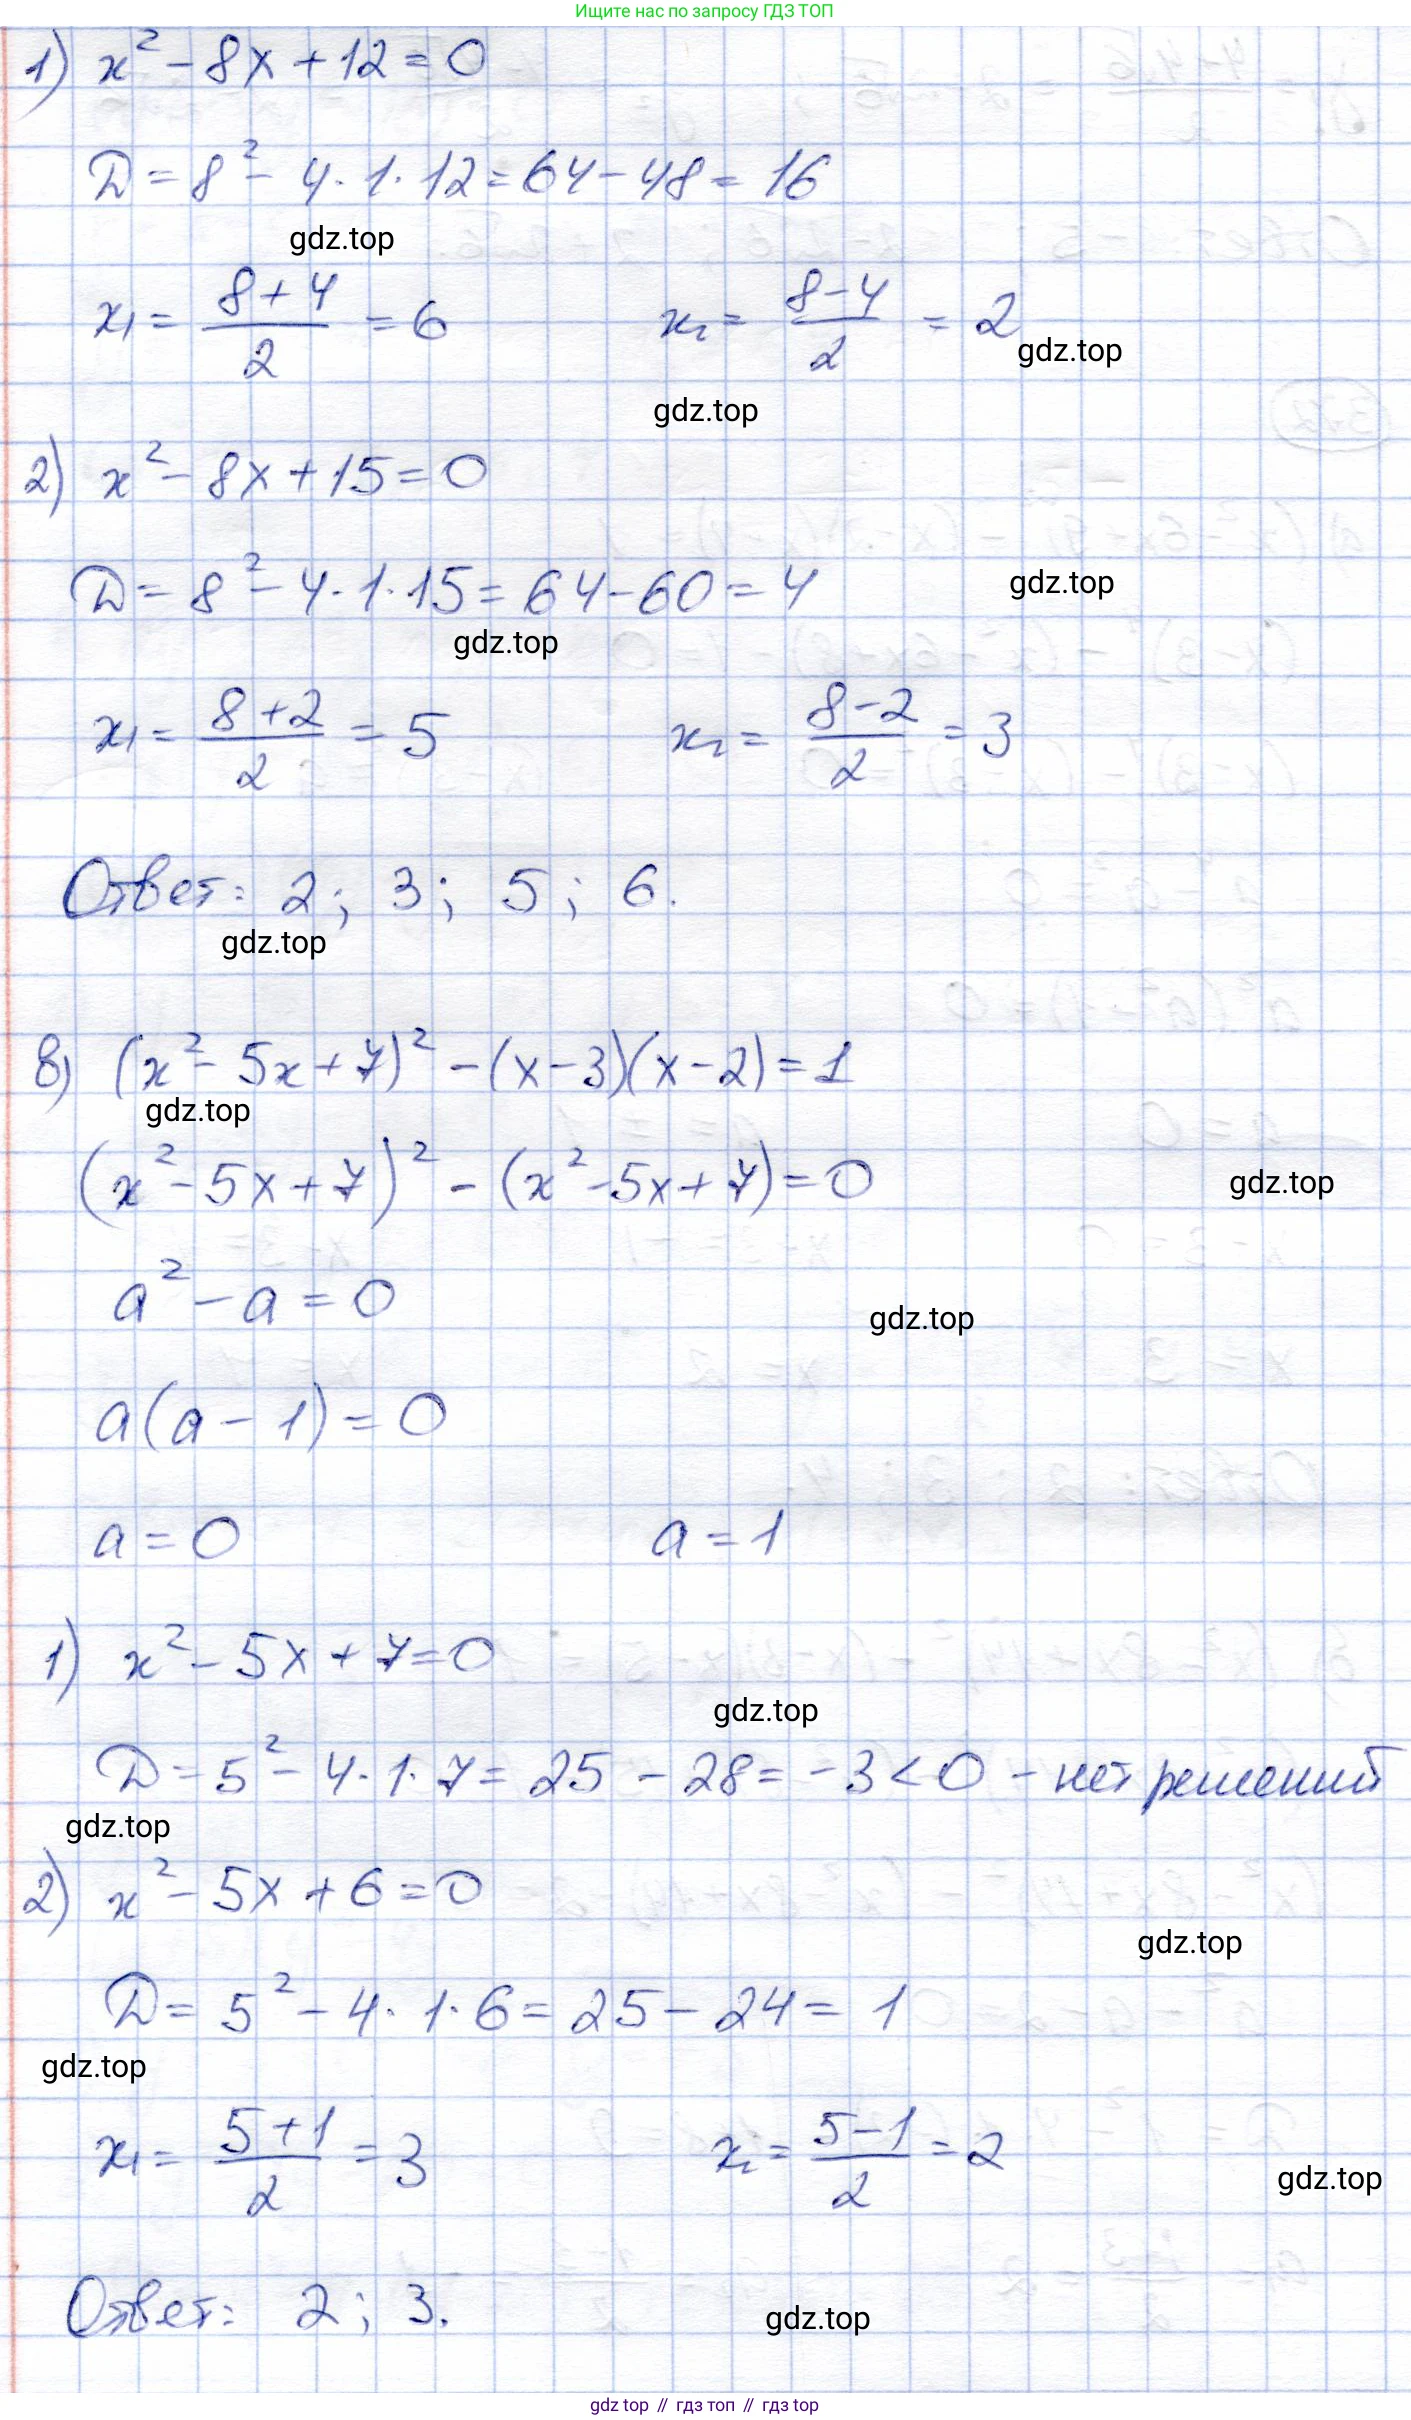 Ищите нас по запросу ГДЗ ТОП
1) x² - 8x + 12 = 0
D = 8² - 4 · 1 · 12 = 64 - 48 = 16
gdz.top
x₁ = (8 + 4)/2 = 6    x₂ = (8 - 4)/2 = 2
gdz.top
gdz.top
2) x² - 8x + 15 = 0
D = 8² - 4 · 1 · 15 = 64 - 60 = 4
gdz.top
gdz.top
x₁ = (8 + 2)/2 = 5    x₂ = (8 - 2)/2 = 3
Ответ: 2; 3; 5; 6.
gdz.top
в) (x² - 5x + 7)² - (x - 3)(x - 2) = 1
gdz.top
(x² - 5x + 7)² - (x² - 5x + 7) = 0
gdz.top
a² - a = 0
gdz.top
a(a - 1) = 0
a = 0    a = 1
1) x² - 5x + 7 = 0
gdz.top
D = 5² - 4 · 1 · 7 = 25 - 28 = -3 < 0 - нет решений
gdz.top
2) x² - 5x + 6 = 0
gdz.top
D = 5² - 4 · 1 · 6 = 25 - 24 = 1
gdz.top
x₁ = (5 + 1)/2 = 3    x₂ = (5 - 1)/2 = 2
gdz.top
Ответ: 2; 3.
gdz.top
gdz top // гдз топ // гдз top